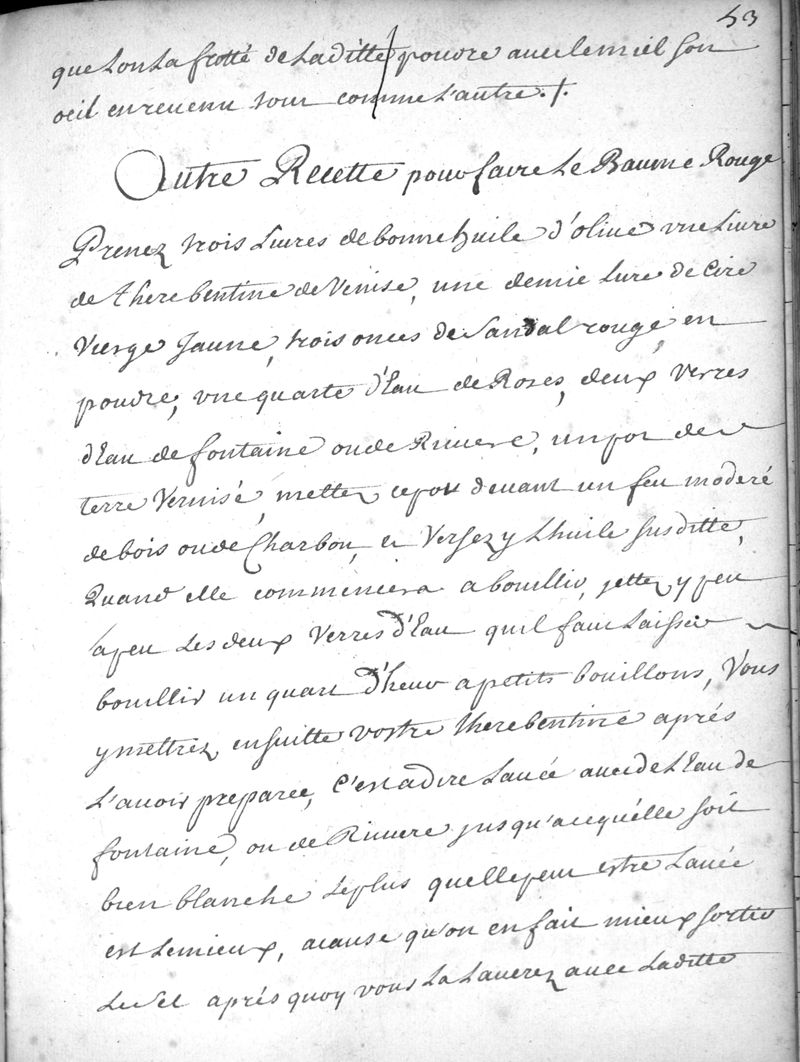 53
que Lon La frotté de Laditte poudre avec le miel son
oeil en revenu tout comme L'autre .
Autre Recette pour faire Le Baume Rouge
Prenez trois Livres de bonne huile d'olive une Livre
de therebentine de Venise, une demie Livre de Cire
Vierge Jaune, trois onces de Sandal rouge, en
poudre, une quarte d'Eau de Roses, deux Verres
d'Eau de fontaine ou de Riviere, un pot de
terre Vernisé, mettez ce pot devant un feu moderé
de bois ou de Charbon, et Versez y L'huile susditte,
Quand elle commencera a bouillir, jettez y peu
a peu Les deux Verres d'Eau quil faut Laisser
bouillir un quart d'heur a petits bouillons, Vous
y mettrez ensuitte vostre therebentine aprés
L'avoir preparée, C'est a dire Lavée avec de L'Eau de
fontaine, ou de Riviere jusqu'a ce qu'elle soit
bien blanche Le plus quelle peut estre Lavée
est Le mieux, a cause qu'on en fait mieux sortir
Le Sel aprés quoy vous La Laverez avec Laditte